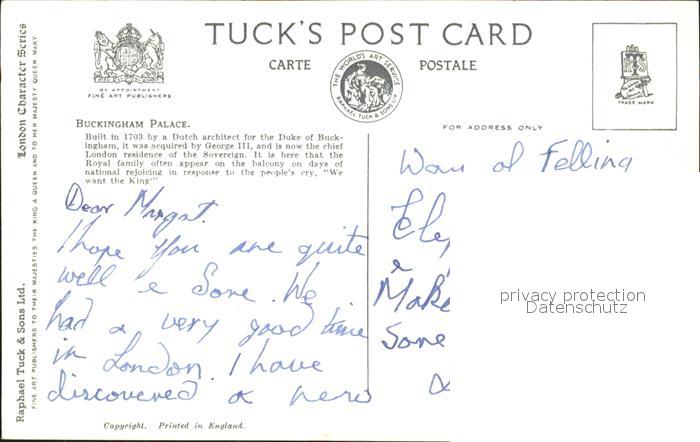 TUCK'S POST CARD
CARTE POSTALE
THE WORLD'S ART SERVICE
RAPHAEL TUCK & SONS LTD
BY APPOINTMENT
FINE ART PUBLISHERS
TRADE MARK
FOR ADDRESS ONLY
London Character Series
Raphael Tuck & Sons Ltd.
FINE ART PUBLISHERS TO THEIR MAJESTIES THE KING & QUEEN AND TO HER MAJESTY QUEEN MARY
BUCKINGHAM PALACE.
Built in 1703 by a Dutch architect for the Duke of Buck-
ingham, it was acquired by George III, and is now the chief
London residence of the Sovereign. It is here that the
Royal family often appear on the balcony on days of
national rejoicing in response to the people's cry, "We
want the King"
Dear
I hope you are quite
well & Sone. We
had a very good time
in London. I have
discovered a new
of Felling
&
Make
Some
privacy protection
Datenschutz
Copyright. Printed in England.